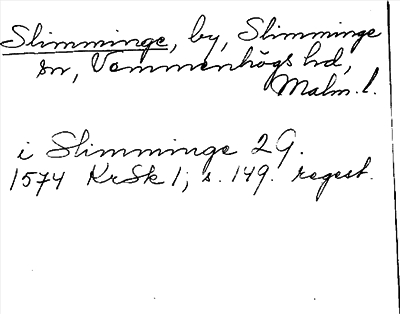 Slimminge, by, Slimminge
sn, Vemmenhögs hd,
Malm. l.
i Slimminge 2 G.
1574 KrSk 1, s. 149. regest.